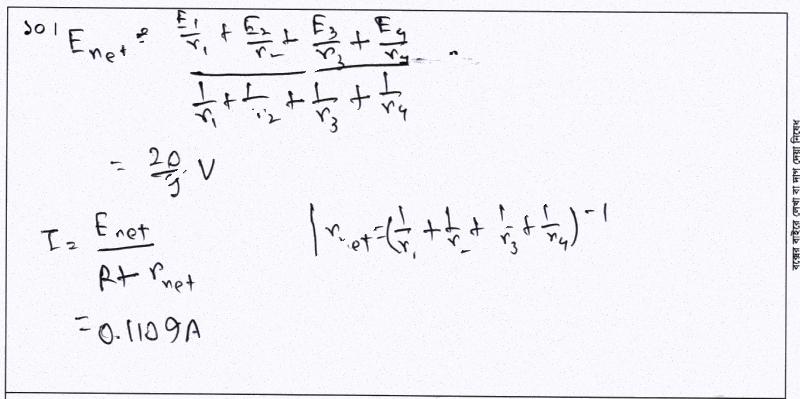 ১০। E_net = (E₁/r₁ + E₂/r₂ + E₃/r₃ + E₄/r₄) / (1/r₁ + 1/r₂ + 1/r₃ + 1/r₄)
= 20/9 V
I = E_net / (R + r_net)
r_net = (1/r₁ + 1/r₂ + 1/r₃ + 1/r₄)⁻¹
= 0.1109A
বক্সের বাইরে লেখা বা দাগ দেয়া নিষেধ